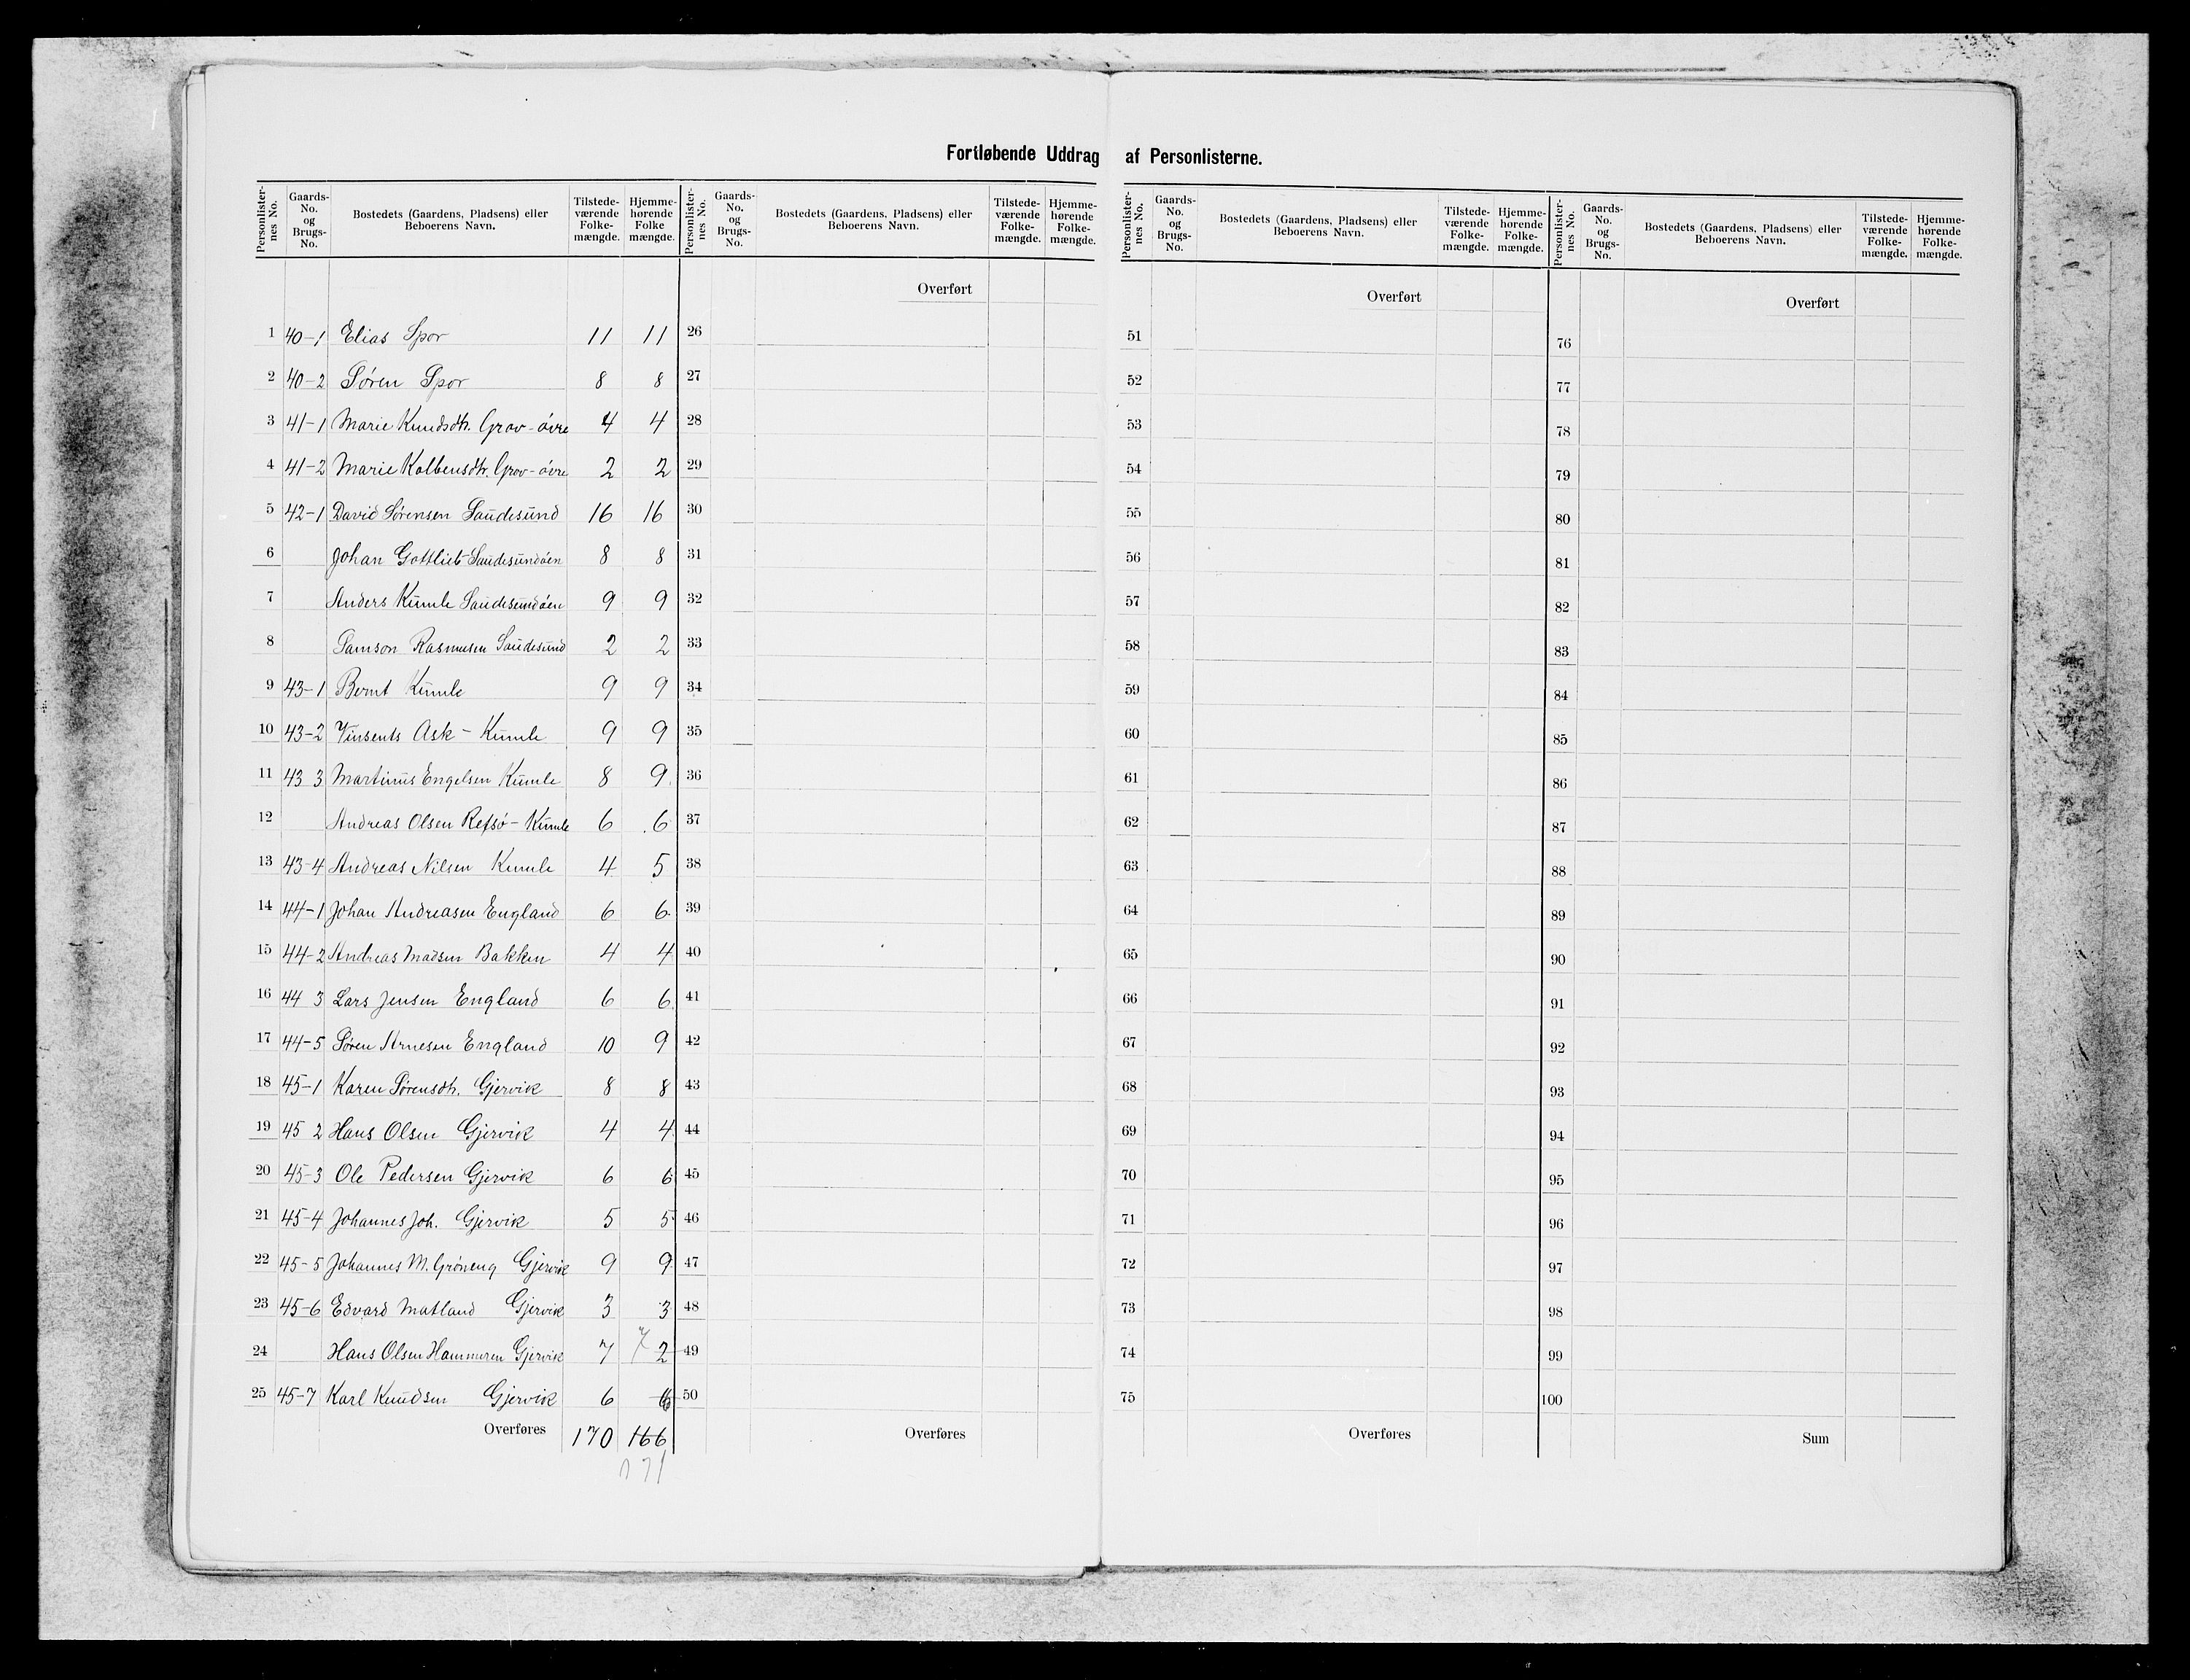 Fortløbende Uddrag af Personlisterne.
Personlister-nes No. Gaards-No. og Brugs-No. Bostedets (Gaardens, Pladsens) eller Beboerens Navn. Tilstede-værende Folke-mængde. Hjemme-hørende Folke mængde.
1 40-1 Elias Spor 11 11
2 40-2 Søren Spor 8 8
3 41-1 Marie Knudsdtr. Grov-övre 4 4
4 41-2 Marie Kolbensdtr. Grov-övre 2 2
5 42-1 David Sörensen Saudesund 16 16
6 Johan Gottlieb Saudesundöen 8 8
7 Anders Kumle Saudesundöen 9 9
8 Samson Rasmusen Saudesund 2 2
9 43-1 Bernt Kumle 9 9
10 43-2 Vinsents Ask - Kumle 9 9
11 43 3 Martinus Engelsen Kumle 8 9
12 Andreas Olsen Refsö - Kumle 6 6
13 43-4 Andreas Nilsen Kumle 4 5
14 44-1 Johan Andreasen England 6 6
15 44-2 Andreas Madsen Bakken 4 4
16 44 3 Lars Jensen England 6 6
17 44-5 Sören Arnesen England 10 9
18 45-1 Karen Sörensdtr. Gjervik 8 8
19 45 2 Hans Olsen Gjervik 4 4
20 45-3 Ole Pedersen Gjervik 6 6
21 45-4 Johannes Joh. Gjervik 5 5
22 45-5 Johannes M. Gröneng Gjervik 9 9
23 45-6 Edvard Matland Gjervik 3 3
24 Hans Olsen Hammeren Gjervik 7 7 2
25 45-7 Karl Knudsen Gjervik 6 6
Overføres 170 166
171
Personlister-nes No. Gaards-No. og Brugs-No. Bostedets (Gaardens, Pladsens) eller Beboerens Navn. Tilstede-værende Folke-mængde. Hjemme-hørende Folke-mængde.
Overført
26
27
28
29
30
31
32
33
34
35
36
37
38
39
40
41
42
43
44
45
46
47
48
49
50
Overføres
Personlister-nes No. Gaards-No. og Brugs-No. Bostedets (Gaardens, Pladsens) eller Beboerens Navn. Tilstede-værende Folke-mængde. Hjemme-hørende Folke-mængde.
Overført
51
52
53
54
55
56
57
58
59
60
61
62
63
64
65
66
67
68
69
70
71
72
73
74
75
Overføres
Personlister-nes No. Gaards-No. og Brugs-No. Bostedets (Gaardens, Pladsens) eller Beboerens Navn. Tilstede-værende Folke-mængde. Hjemme-hørende Folke-mængde.
Overført
76
77
78
79
80
81
82
83
84
85
86
87
88
89
90
91
92
93
94
95
96
97
98
99
100
Sum